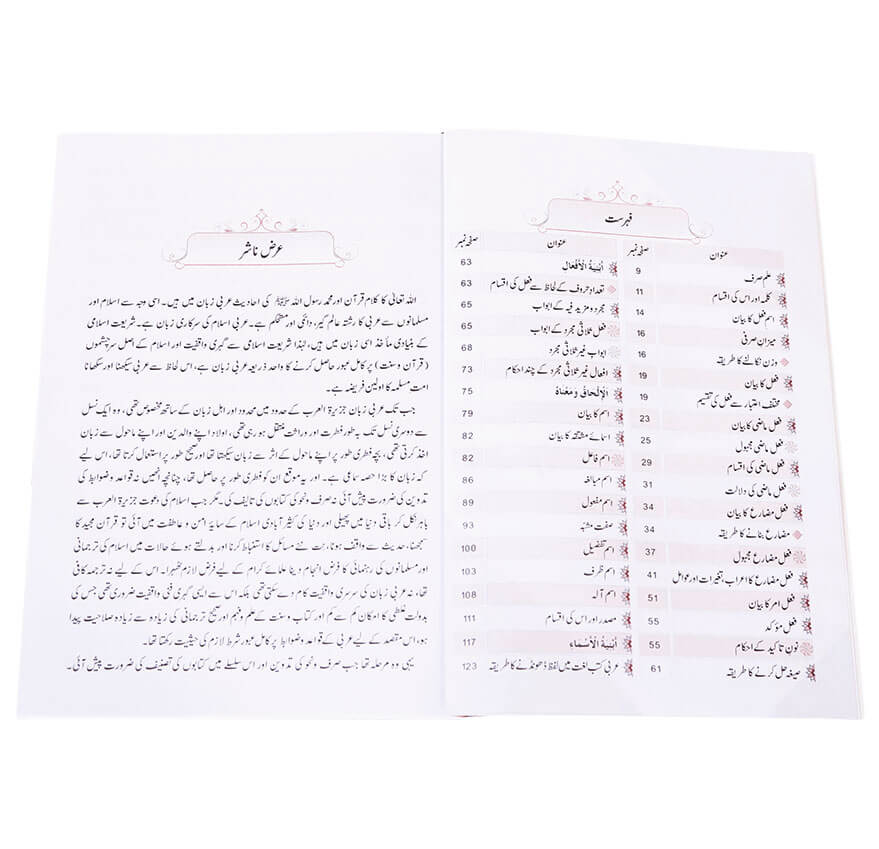 فہرست
عنوان صفحہ نمبر
علم صرف 9
کلمہ اور اس کی اقسام 11
اسم فعل کا بیان 14
میزانِ صرفی 16
وزن نکالنے کا طریقہ 16
فعل کا بیان 19
مختلف اعتبار سے فعل کی تقسیم 19
فعل ماضی کا بیان 23
فعل ماضی مجہول 25
فعل ماضی کی اقسام 29
فعل ماضی کی دلالت 31
فعل مضارع کا بیان 34
مضارع بنانے کا طریقہ 34
فعل مضارع مجہول 37
فعل مضارع کا اعراب، تغیرات اور عوامل 41
فعل امر کا بیان 51
فعل مؤکد 55
نونِ تاکید کے احکام 55
صیغہ حل کرنے کا طریقہ 61
عنوان صفحہ نمبر
أَبْنِيَةُ الْأَفْعَالِ 63
تعدادِ حروف کے لحاظ سے فعل کی اقسام 63
مجرد و مزید فیہ کے ابواب 65
فعل ثلاثی مجرد کے ابواب 65
ابواب غیر ثلاثی مجرد 68
افعال غیر ثلاثی مجرد کے چند احکام 73
الْإِلْحَاقُ وَ مَعْنَاهُ 75
اسم کا بیان 79
اسمائے مشتقہ کا بیان 82
اسم فاعل 82
اسم مبالغہ 86
اسم مفعول 89
صفت مشبّہ 93
اسم تفضیل 100
اسم ظرف 103
اسم آلہ 108
مصدر اور اس کی اقسام 111
أَبْنِيَةُ الْأَسْمَاءِ 117
عربی کتب لغت میں لفظ ڈھونڈنے کا طریقہ 123
عرض ناشر
اللہ تعالیٰ کا کلام قرآن اور محمد رسول اللہ ﷺ کی احادیث عربی زبان میں ہیں۔ اسی وجہ سے اسلام اور
مسلمانوں سے عربی کا رشتہ عالم گیر، دائمی اور مستحکم ہے۔ عربی اسلام کی سرکاری زبان ہے۔ شریعت اسلامی
کے بنیادی مآخذ اسی زبان میں ہیں، لہٰذا شریعت اسلامی سے گہری واقفیت اور اسلام کے اصل سرچشموں
(قرآن و سنت) پر کامل عبور حاصل کرنے کا واحد ذریعہ عربی زبان ہے، اس لحاظ سے عربی سیکھنا اور سکھانا
امت مسلمہ کا اولین فریضہ ہے۔
جب تک عربی زبان جزیرۃ العرب کے حدود میں محدود اور اہل زبان کے ساتھ مخصوص تھی، وہ ایک نسل
سے دوسری نسل تک بہ طور فطرت اور وراثت منتقل ہو رہی تھی، اولاد اپنے والدین اور اپنے ماحول سے زبان
اخذ کرتی تھی، بچہ فطری طور پر اپنے ماحول کے اثر سے زبان سیکھتا تھا اور صحیح طور پر استعمال کرتا تھا، اس لیے
کہ زبان کا بڑا حصہ سماعی ہے۔ اور یہ موقع ان کو فطری طور پر حاصل تھا، چنانچہ انھیں نہ قواعد و ضوابط کی
تدوین کی ضرورت پیش آئی نہ صرف و نحو کی کتابوں کی تالیف کی۔ مگر جب اسلام کی دعوت جزیرۃ العرب سے
باہر نکل کر باقی دنیا میں پھیلی اور دنیا کی کثیر آبادی اسلام کے سایۂ امن و عاطفت میں آئی تو قرآن مجید کا
سمجھنا، حدیث سے واقف ہونا، نت نئے مسائل کا استنباط کرنا اور بدلتے ہوئے حالات میں اسلام کی ترجمانی
اور مسلمانوں کی رہنمائی کا فرض انجام دینا علمائے کرام کے لیے فرض لازم ٹھہرا۔ اس کے لیے نہ ترجمہ کافی
تھا، نہ عربی زبان کی سرسری واقفیت کام دے سکتی تھی بلکہ اس سے ایسی گہری فنی واقفیت ضروری تھی جس کی
بدولت غلطی کا امکان کم سے کم اور کتاب و سنت کے علم و فہم اور صحیح ترجمانی کی زیادہ سے زیادہ صلاحیت پیدا
ہو، اس مقصد کے لیے عربی کے قواعد و ضوابط پر کامل عبور شرط لازم کی حیثیت رکھتا تھا۔
یہی وہ مرحلہ تھا جب صرف و نحو کی تدوین اور اس سلسلے میں کتابوں کی تصنیف کی ضرورت پیش آئی۔